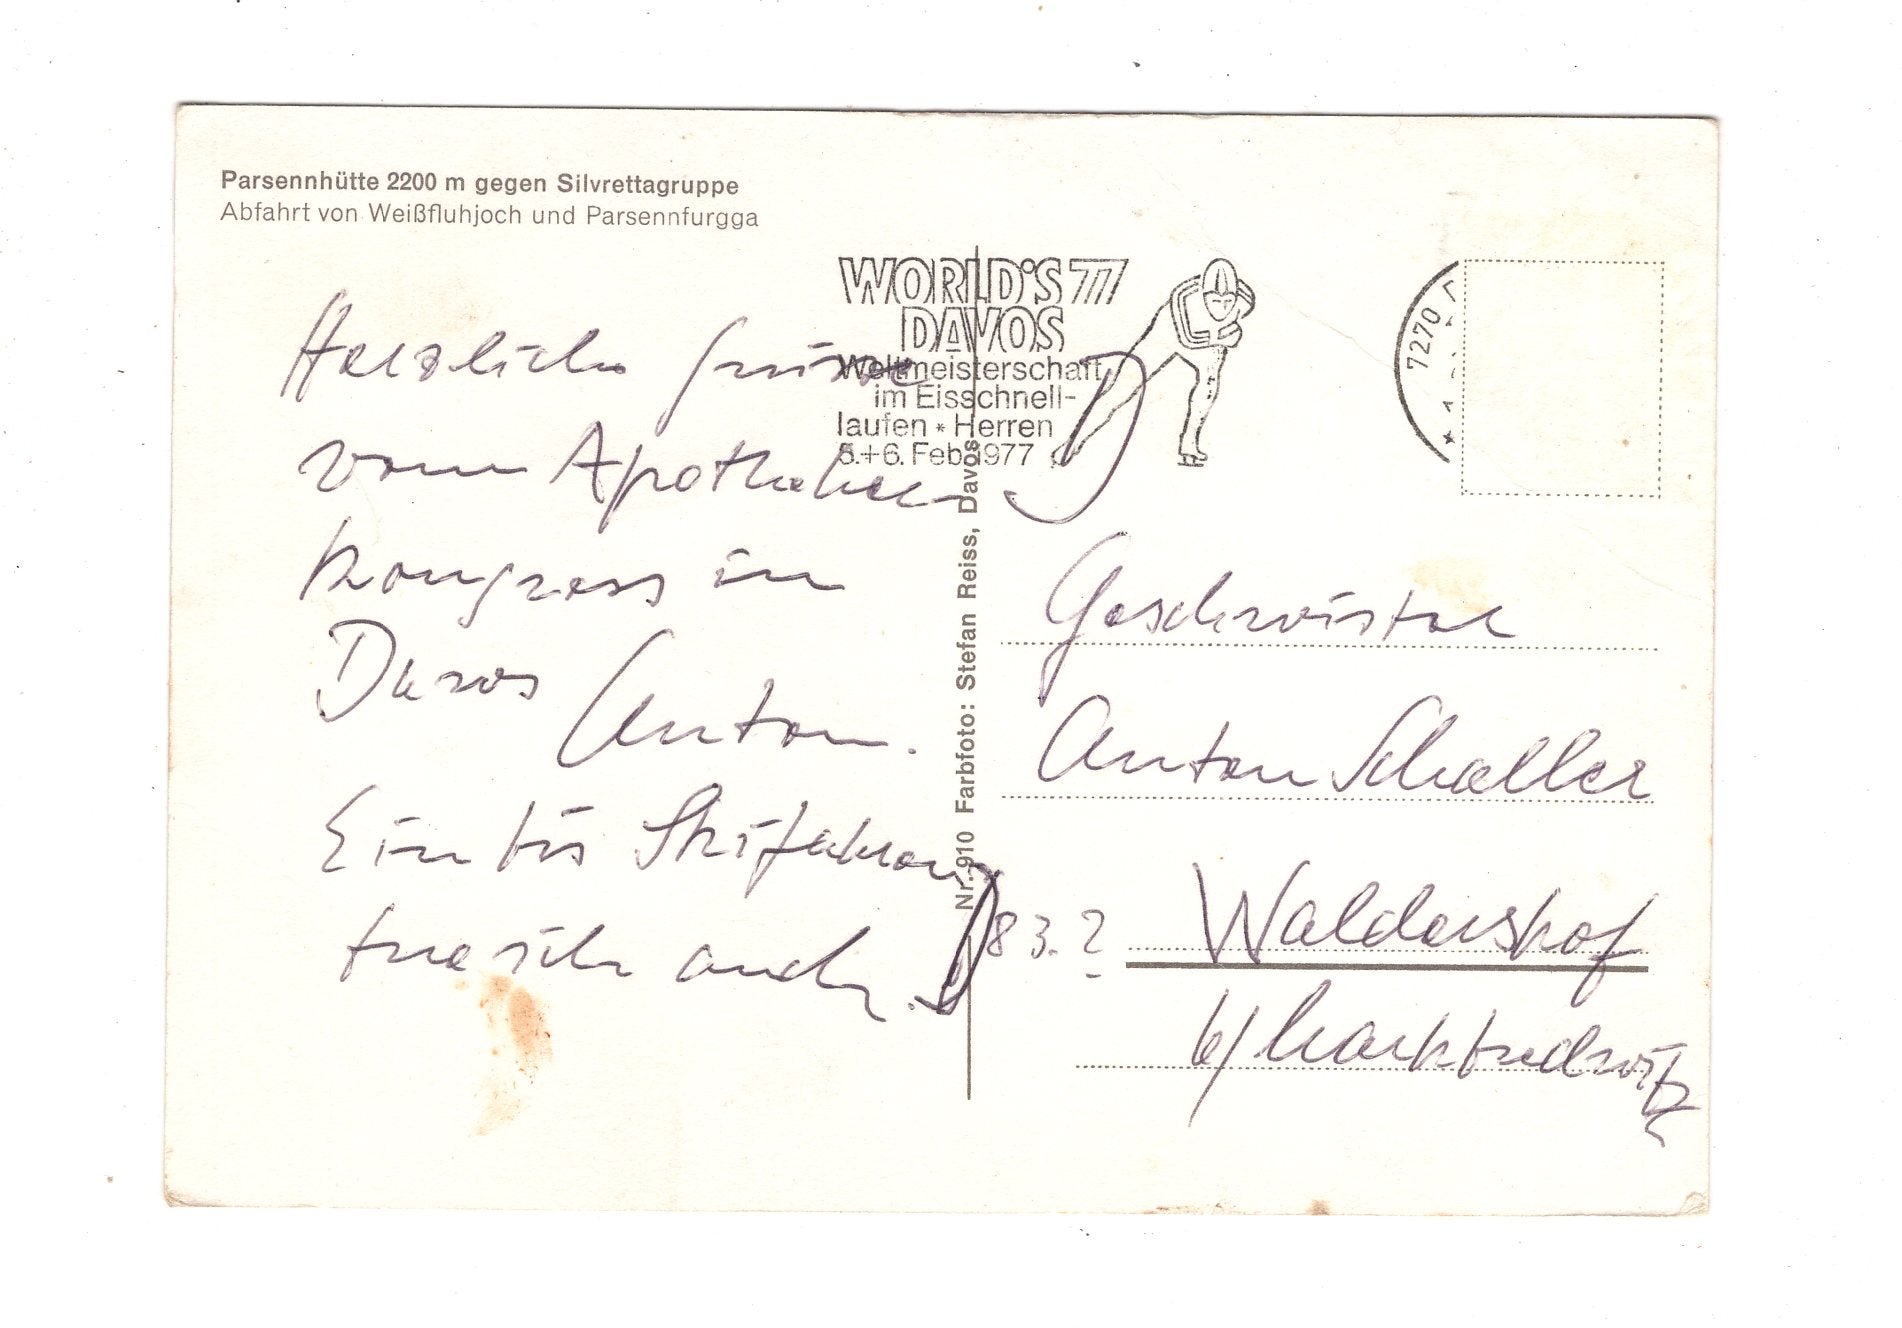 Parsennhütte 2200 m gegen Silvrettagruppe
Abfahrt von Weißfluhjoch und Parsennfurgga
WORLD'S 77
DAVOS
Weltmeisterschaft
im Eisschnell-
laufen * Herren
5.+6. Feb. 1977
7270
Herzliche Grüsse
vom Apotheker
kongress in
Davos
Anton.
Ein bis Skifahren
tue ich auch.
Nr. 910 Farbfoto: Stefan Reiss, Davos
D
Geschwister
Anton Schaller
D 83.?
Waldershof
b/ Marktredwitz